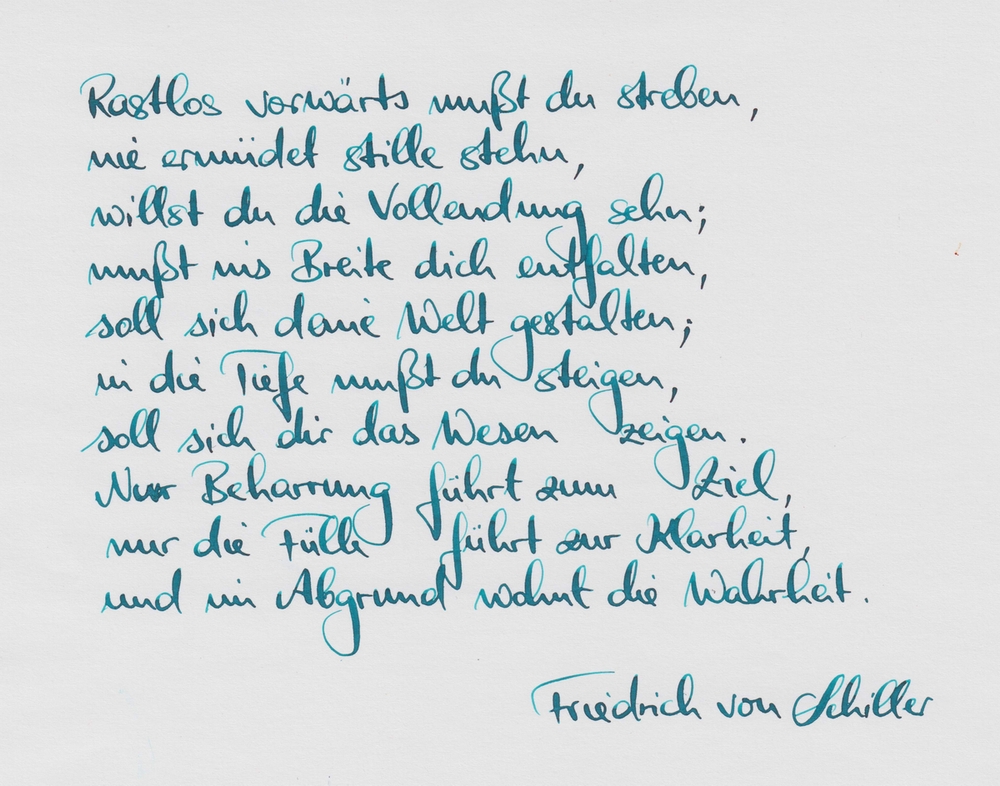 Rastlos vorwärts mußt du streben,
nie ermüdet stille stehn,
willst du die Vollendung sehn;
mußt ins Breite dich entfalten,
soll sich deine Welt gestalten;
in die Tiefe mußt du steigen,
soll sich dir das Wesen zeigen.
Nur Beharrung führt zum Ziel,
nur die Fülle führt zur Klarheit,
und im Abgrund wohnt die Wahrheit.
Friedrich von Schiller